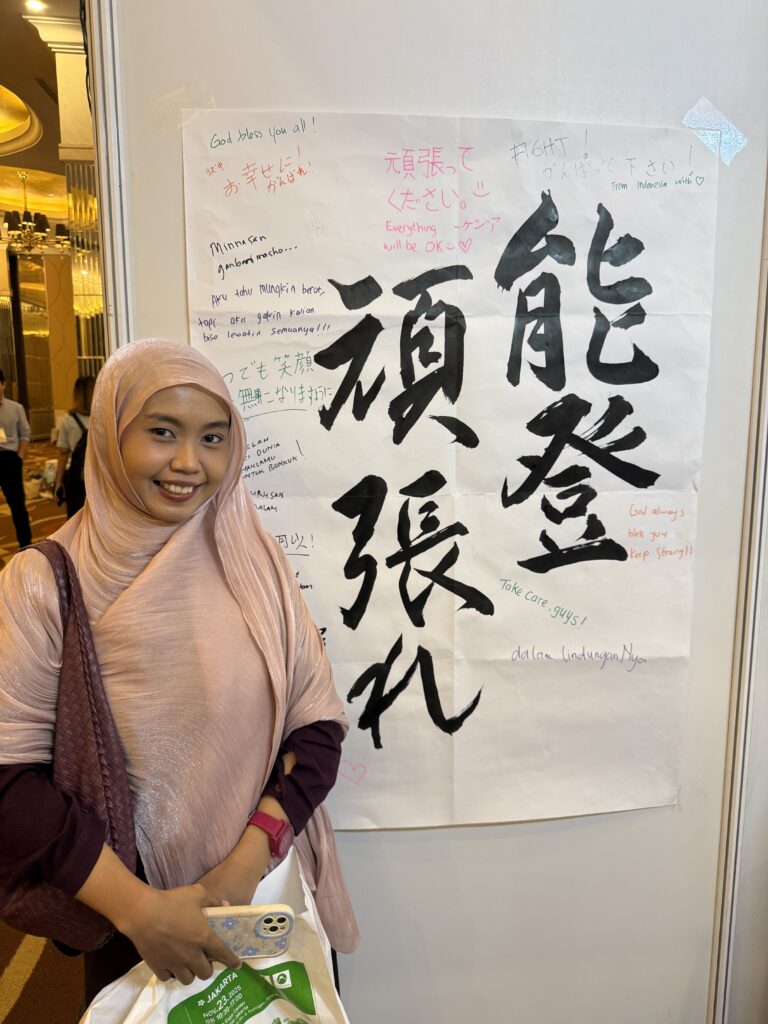 God bless you all!
お幸せに!
がんばれ!
頑張って
ください。
Everything ーケジア
will be OK
FIGHT!
がんばって下さい!
From Indonesia with
Minnasan
ganbarimasho...
Aku tahu mungkin berat,
tapi aku yakin kalian
bisa lewatin semuanya!!!
つでも笑顔
無事になりますように
能登
頑張れ
DUNIA
UNTUK BUNKUK!
可以!
God always
bless you
Keep Strong!!
Take care guys!
dalam lindunganNya
JAKARTA
NOV.23.2025
10:30-17:00